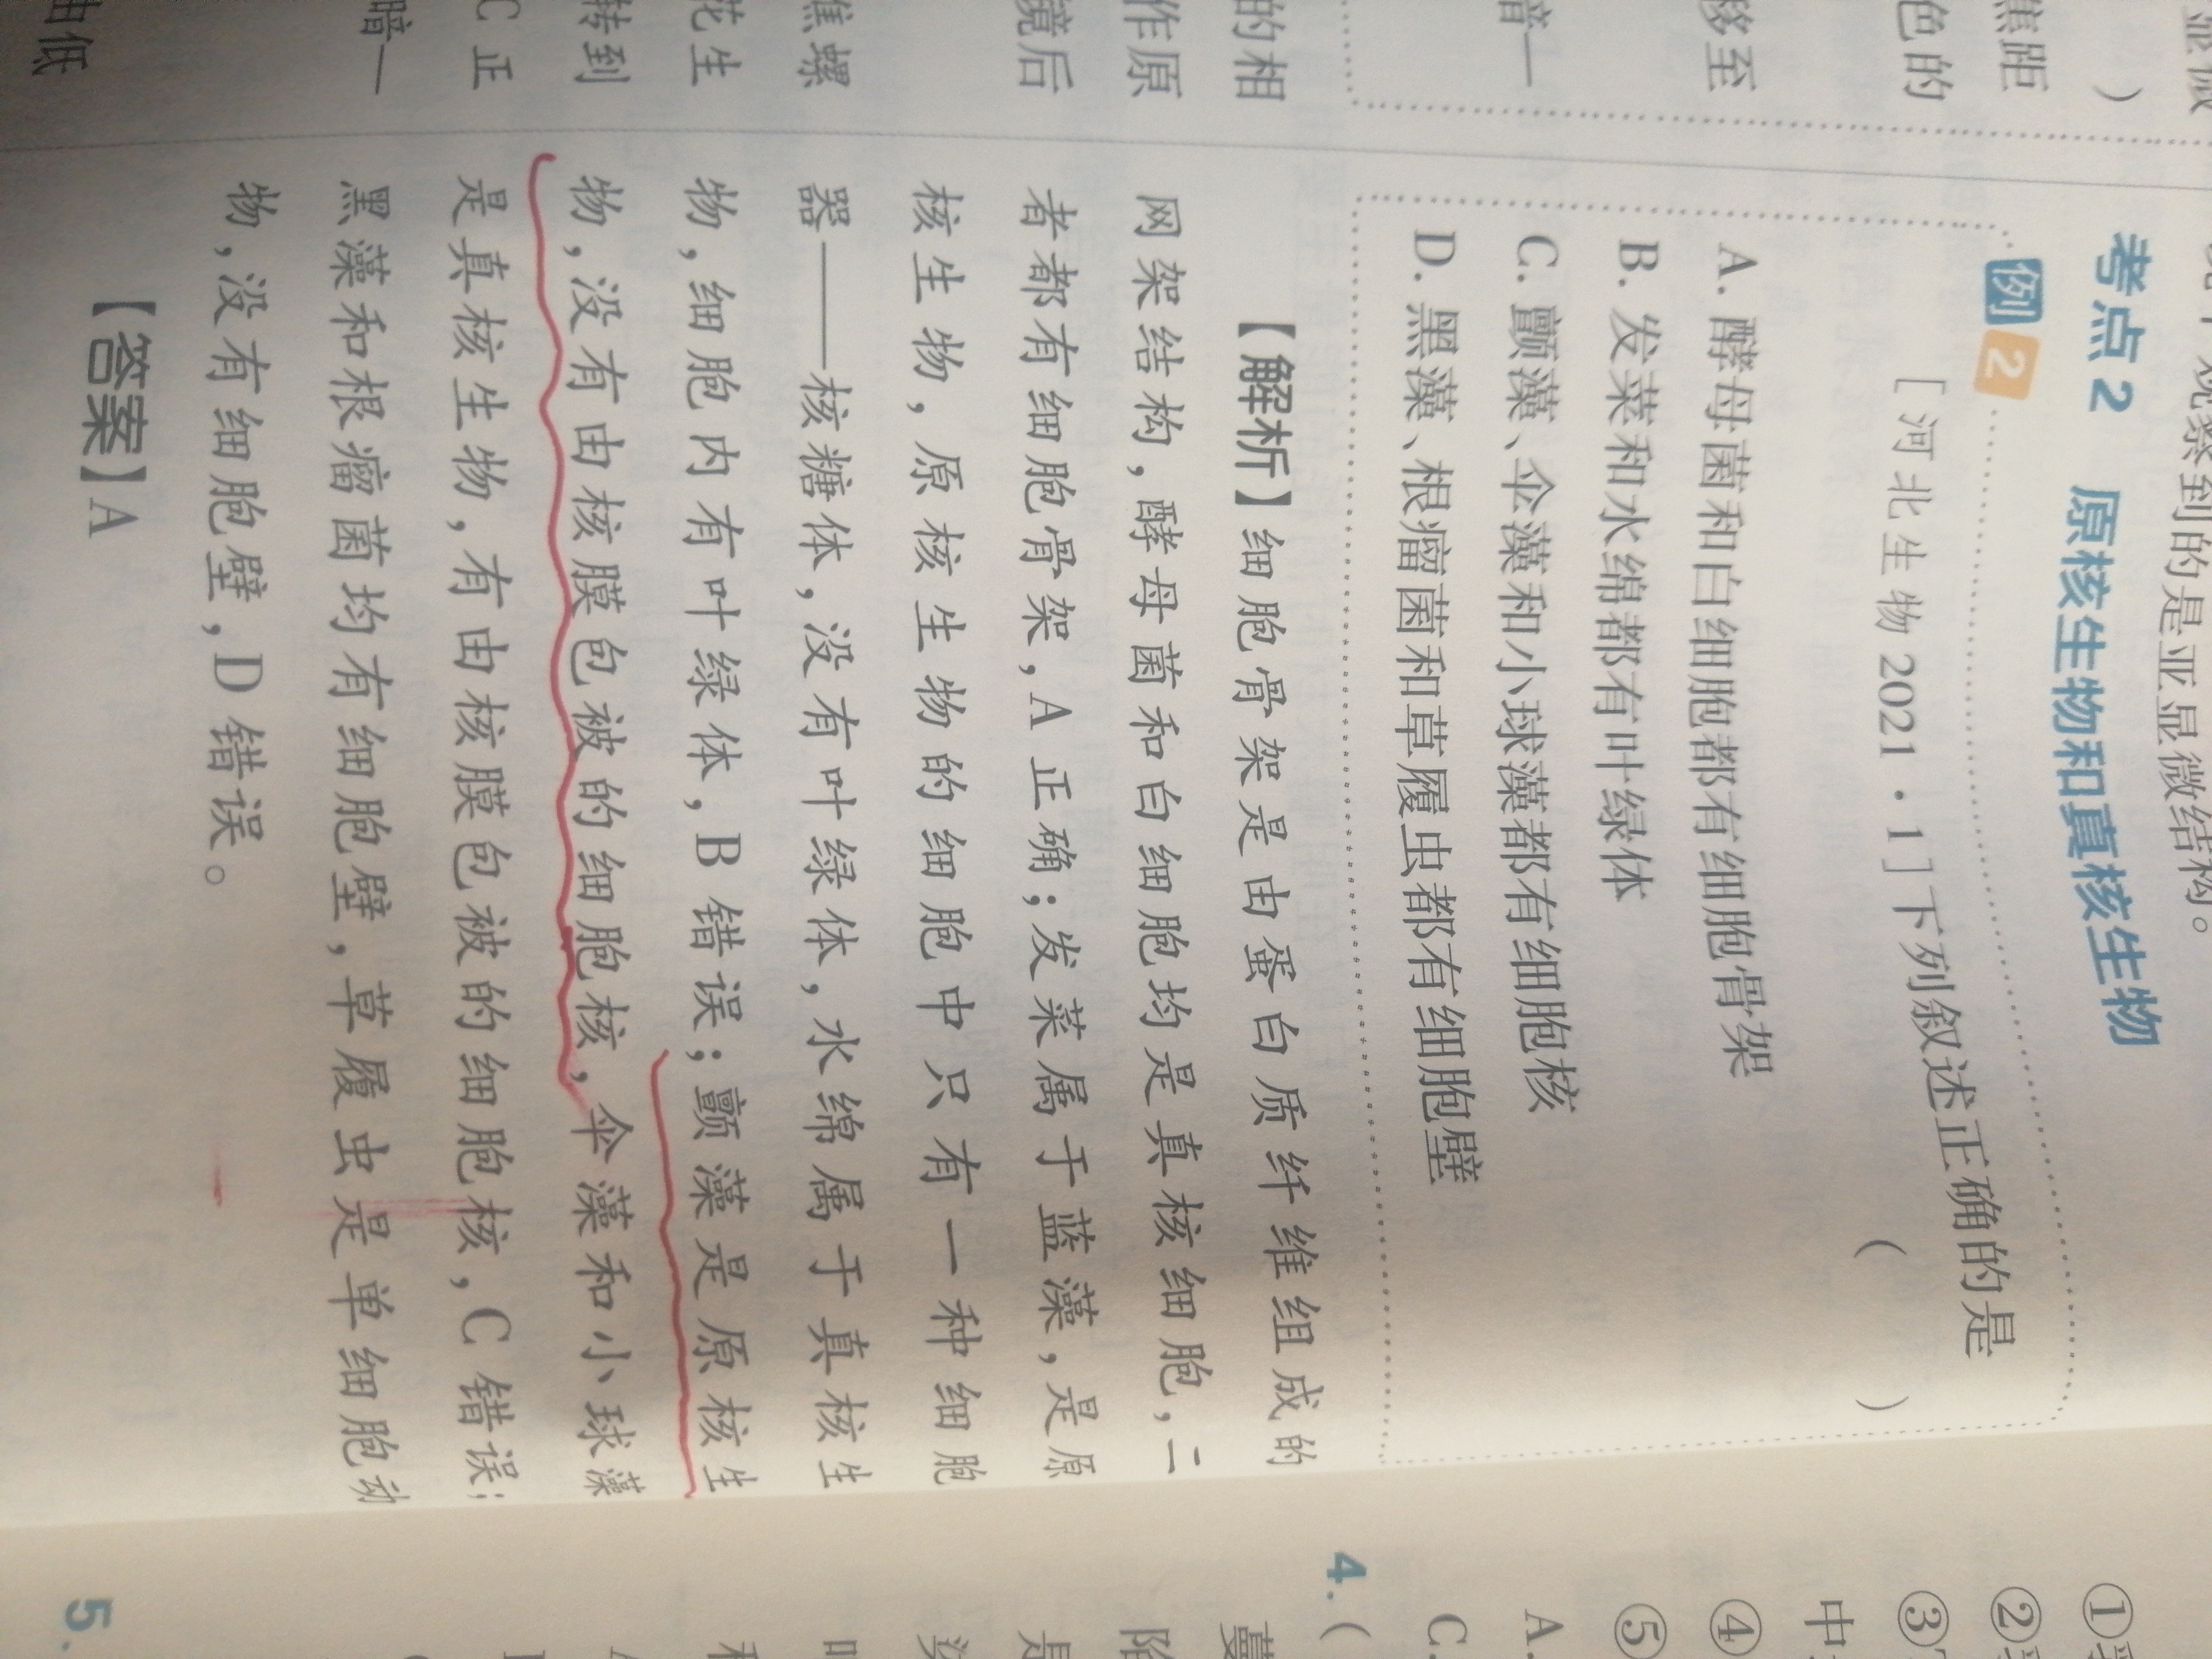 观察到的是亚显微结构。
考点2 原核生物和真核生物
例2
[河北生物2021·1]下列叙述正确的是
( )
A. 酵母菌和白细胞都有细胞骨架
B. 发菜和水绵都有叶绿体
C. 颤藻、伞藻和小球藻都有细胞核
D. 黑藻、根瘤菌和草履虫都有细胞壁
【解析】细胞骨架是由蛋白质纤维组成的
网架结构,酵母菌和白细胞均是真核细胞,二
者都有细胞骨架,A正确;发菜属于蓝藻,是原
核生物,原核生物的细胞中只有一种细胞
器——核糖体,没有叶绿体,水绵属于真核生
物,细胞内有叶绿体,B错误;颤藻是原核生
物,没有由核膜包被的细胞核,伞藻和小球藻
是真核生物,有由核膜包被的细胞核,C错误;
黑藻和根瘤菌均有细胞壁,草履虫是单细胞动
物,没有细胞壁,D错误。
【答案】A
焦距
)
色的
移至
暗—
的相
作原
镜后
焦螺
花生
转到
C正
暗—
由低
①
②
③
中
④
⑤
A.
C.
4. (
蔓
陷
是
5.